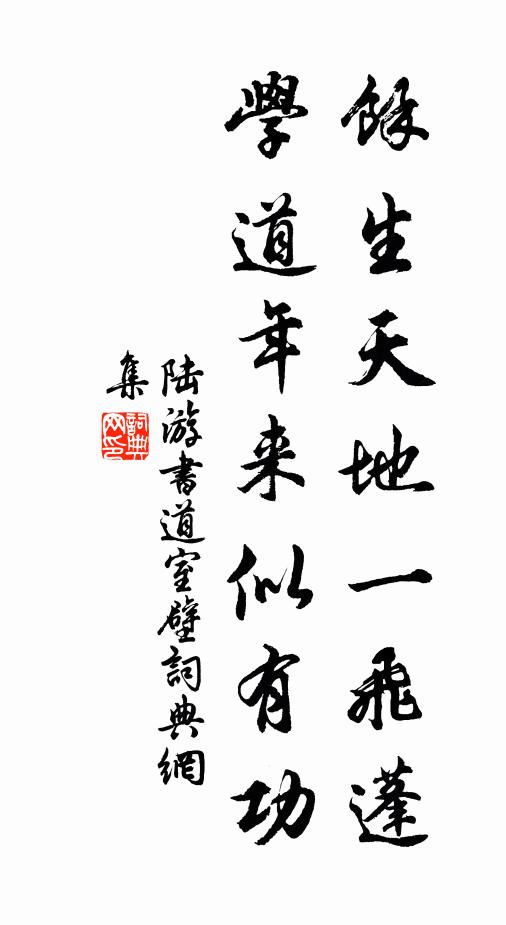 餘生天地一飛蓬
學道年来似有功
陆游書道室壁詞典網
集
詞典
网印